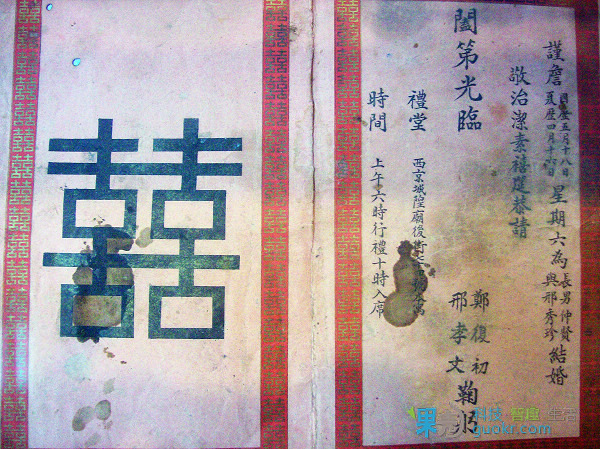 謹詹
國歷五月十八日
夏歷四月十六日
星期六為
長男仲賢
與邢秀珍
結婚
敬治潔素禧筵恭請
闔第光臨
鄭復初
邢孝文
鞠躬
禮堂 西京城隍廟後街七號本寓
時間 上午六時行禮十時入席
囍
果 科技 智趣 生活
guokr.com